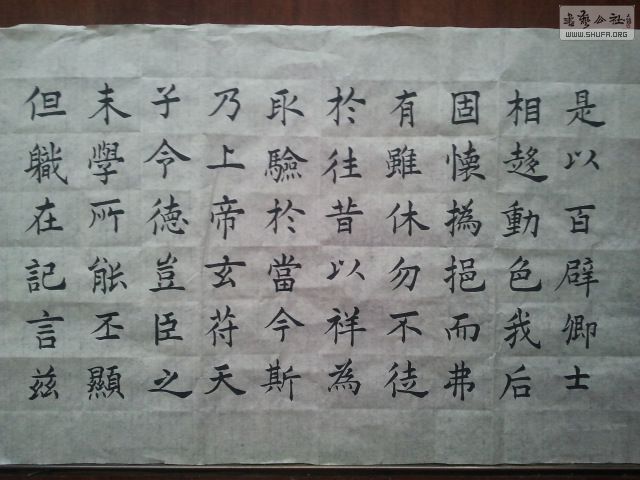 是以百辟卿士
相趍動色我后
固懷撝挹而弗
有雖休勿不徒
於往昔以祥為
取驗於當今斯
乃上帝玄符天
子令德豈臣之
末學所能丕顯
但職在記言茲
书藝公社
WWW.SHUFA.ORG